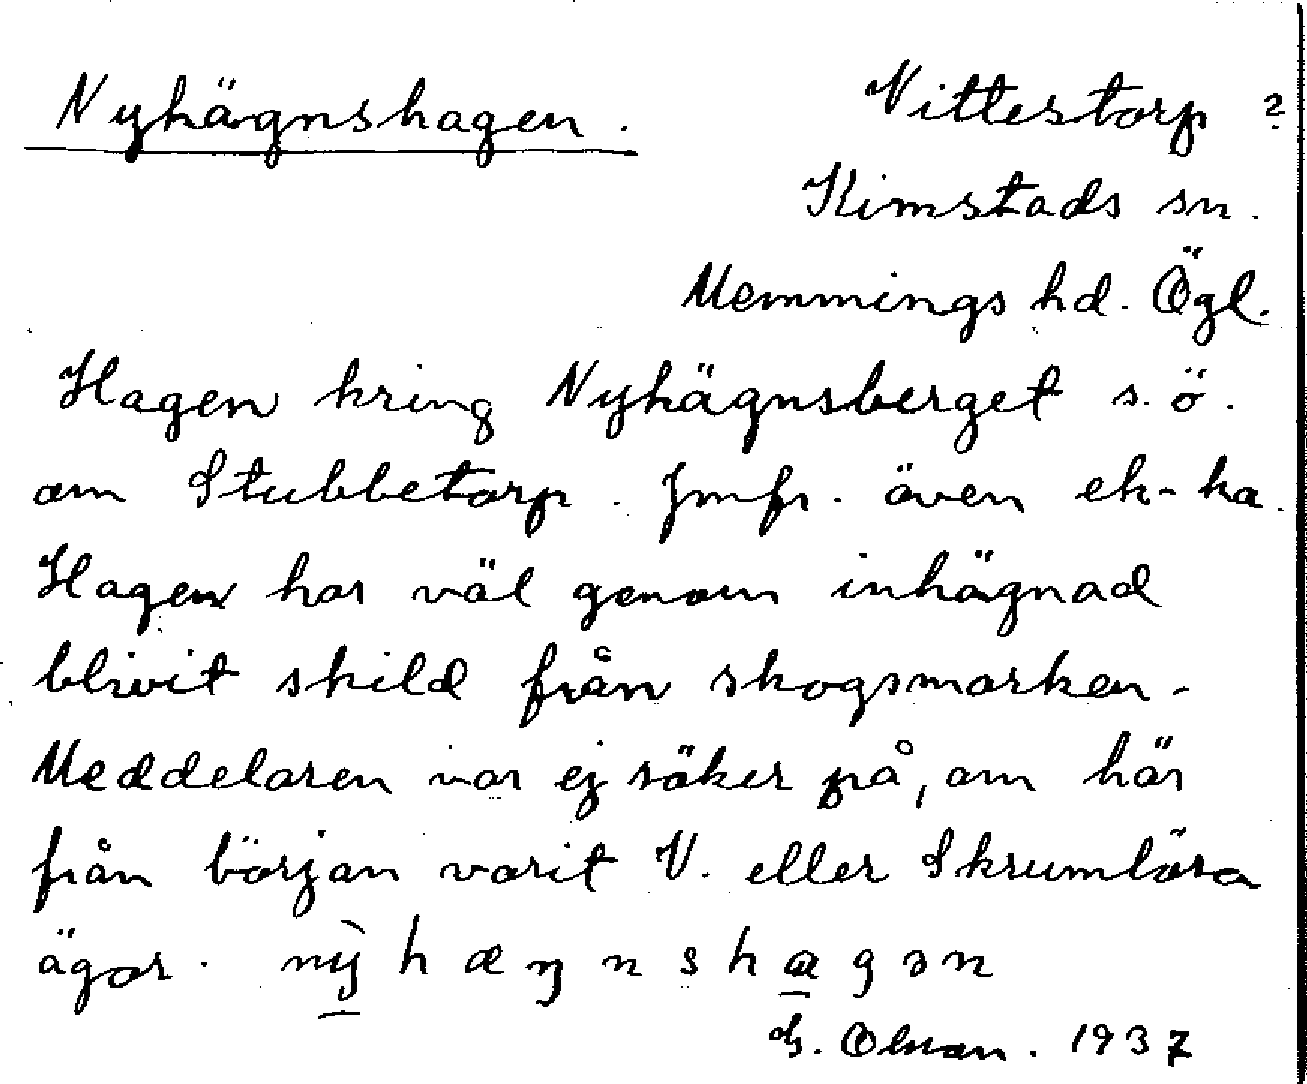 Nyhägnshagen.
Vittestorp ?
Kimstads sn.
Memmings hd. Ögl.
Hagen kring Nyhägnsberget s.ö.
om Stubbetorp. Jmfr. även ek-ka.
Hagen har väl genom inhägnad
blivit skild från skogsmarken.
Meddelaren var ej säker på, om här
från början varit V. eller Skrumlösa
ägor. nỳhæŋnshagən
G. Olson. 1937